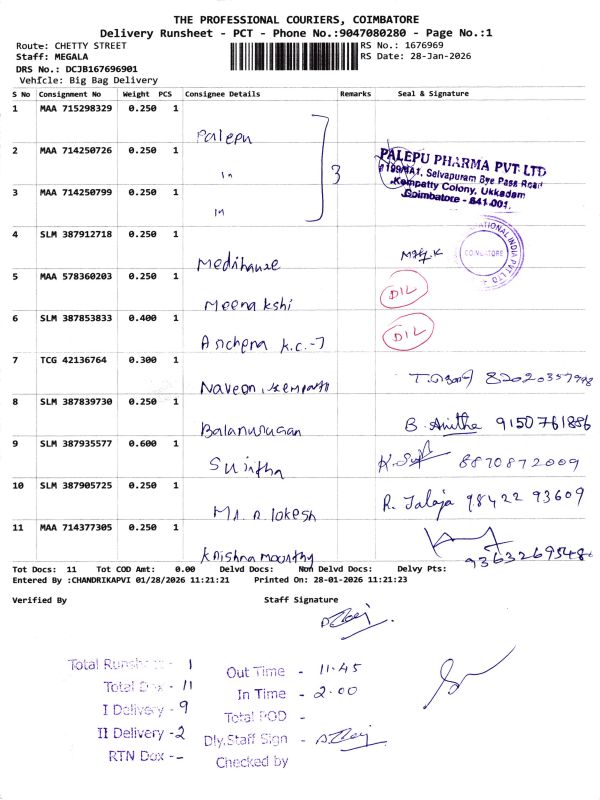 THE PROFESSIONAL COURIERS, COIMBATORE
Delivery Runsheet - PCT - Phone No.:9047080280 - Page No.:1
Route: CHETTY STREET
RS No.: 1676969
Staff: MEGALA
RS Date: 28-Jan-2026
DRS No.: DCJB167696901
Vehicle: Big Bag Delivery
S No Consignment No Weight PCS Consignee Details Remarks Seal & Signature
1 MAA 715298329 0.250 1 Palepu
2 MAA 714250726 0.250 1 in 3
PALEPU PHARMA PVT LTD
#199/8A1, Selvapuram Bye Pass Road
Kempatty Colony, Ukkadam
Coimbatore - 641 001.
3 MAA 714250799 0.250 1 in
4 SLM 387912718 0.250 1 Medihause
COIMBATORE
5 MAA 578360203 0.250 1 Meenakshi DIL
6 SLM 387853833 0.400 1 Archena K.C.-7 DIL
7 TCG 42136764 0.300 1 Naveen,
8 SLM 387839730 0.250 1 Balamurugan B. Anitha 9150761886
9 SLM 387935577 0.600 1 Sujitha 8870872009
10 SLM 387905725 0.250 1 Mr. R. lokesh R. Jalaja 98422 93609
11 MAA 714377305 0.250 1 Krishna moorthy
Tot Docs: 11 Tot COD Amt: 0.00 Delvd Docs: Non Delvd Docs: Delvy Pts:
Entered By :CHANDRIKAPVI 01/28/2026 11:21:21 Printed On: 28-01-2026 11:21:23
Verified By Staff Signature
Total Runsheet - 1
Out Time - 11.45
Total Dox - 11
In Time - 2.00
I Delivery - 9
Total POD -
II Delivery - 2
Dly.Staff Sign -
RTN Dox - -
Checked by